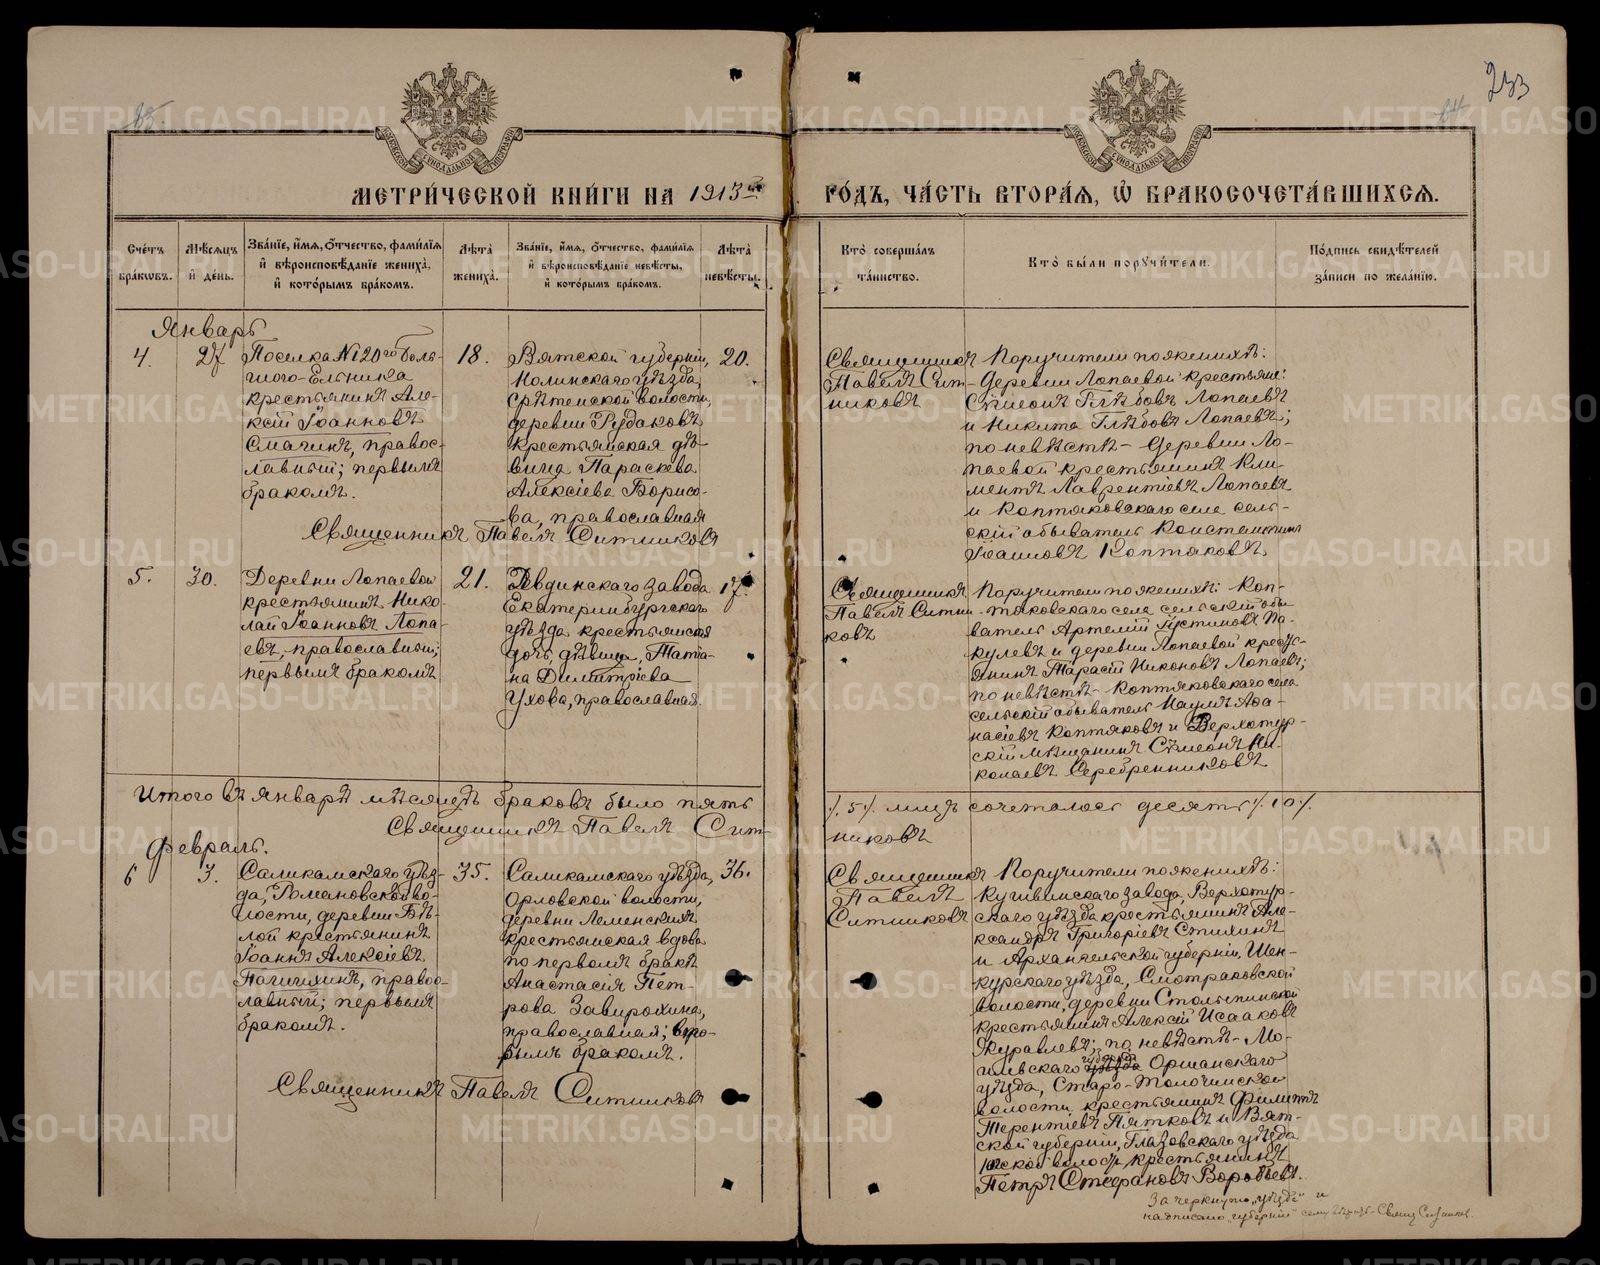 233
МЕТРИ́ЧЕСКОЙ КНИ́ГИ НА 1913й
ГО́ДЪ, ЧА́СТЬ ВТОРА́Я, Ѽ БРАКОСОЧЕТА́ВШИХСЯ.
Сче́тъ бра́ковъ.
Мѣ́сяцъ и҆ де́нь.
Зва́нїе, и҆́мя, ѻ҆́тчество, фами́лїя
и҆ вѣроисповѣ́данїе жениха̀,
и҆ кото́рымъ бра́комъ.
Лѣта̀ жениха̀.
Зва́нїе, и҆́мя, ѻ҆́тчество, фами́лїя
и҆ вѣроисповѣ́данїе невѣ́сты,
и҆ кото́рымъ бра́комъ.
Лѣта̀ невѣ́сты.
Кто̀ соверша́лъ
та́инство.
Кто̀ бы́ли порꙋчи́тели.
По́дпись свидѣ́телей
за́писи по жела́нїю.
Январь
4.
27
Поселка №120го Боль-
шого-Ельника
крестьянинъ Але-
ксiй Іоанновъ
Смагинъ, правос-
лавный; первымъ
бракомъ.
18.
Вятской губернiи,
Нолинскаго уѣзда,
Срѣтенской волости,
деревни Рудаковъ
крестьянская дѣ-
вица Параскева
Алексiева Борисо-
ва, православная
20.
Священникъ Павелъ Ситниковъ
Священникъ
Павелъ Сит-
никовъ
Поручители по женихѣ:
Деревни Лопаевой крестьяне:
Сѵмеонъ Глѣбовъ Лопаевъ
и Никита Глѣбовъ Лопаевъ;
по невѣстѣ - Деревни Ло-
паевой крестьянинъ Кли-
ментъ Лаврентiевъ Лопаевъ
и Коптяковскаго села сель-
скiй обыватель Константинъ
Іоанновъ Коптяковъ
5.
30.
Деревни Лопаевой
крестьянинъ Нико-
лай Іоанновъ Лопа-
евъ, православный;
первымъ бракомъ
21.
Ревдинскаго завода
Екатеринбургскаго
уѣзда крестьянская
дочь, дѣвица, Татiа-
на Димитрiева
Ухова, православная.
17.
Священникъ
Павелъ Ситни-
ковъ
Поручители по женихѣ: Коп-
тяковскаго села сельскiй обы-
ватель Артемiй Іустиновъ Па-
кулевъ и деревни Лопаевой кресть-
янинъ Тарасiй Никоновъ Лопаевъ;
по невѣстѣ - Коптяковскаго села
сельскiй обыватель Наумъ Аѳа-
насiевъ Коптяковъ и Верхотур-
скiй мѣщанинъ Сѵмеонъ Ни-
колаевъ Серебренниковъ
Итого въ январѣ мѣсяцѣ браковъ было пять
/.5/. лицъ сочеталось десять /.10/.
Священникъ Павелъ Сит-
никовъ
Февраль.
6
3.
Соликамскаго уѣз-
да, Романовской во-
лости, деревни Бѣ-
лой крестьянинъ
Іоаннъ Алексiевъ
Пагишхинъ, право-
славный; первымъ
бракомъ.
35.
Соликамскаго уѣзда,
Орловской волости,
деревни Леменскихъ
крестьянская вдова
по первомъ бракѣ
Анастасiя Пет-
рова Завирохина,
православная; вто-
рымъ бракомъ.
36.
Священникъ Павелъ Ситниковъ
Священникъ
Павелъ
Ситниковъ
Поручители по женихѣ:
Кушвинскаго завода, Верхотур-
скаго уѣзда крестьянинъ Але-
ксандръ Григорiевъ Стихинъ
и Архангельской губернiи, Шен-
курскаго уѣзда, Смотраковской
волости, деревни Столыпинской
крестьянинъ Алексiй Исааковъ
Журавлевъ; по невѣстѣ - Мо-
гилевскаго губернiи уѣзда Оршанскаго
уѣзда, Старо-Толочинской
волости, крестьянинъ Филиппъ
Терентiевъ Пятковъ и Вят-
ской губернiи, Глазовскаго уѣзда,
волости крестьянинъ
Петръ Стефановъ Воробьевъ.
Зачеркнуто „уѣзда" и
надписано „губернiи" Свящ. Ситников.